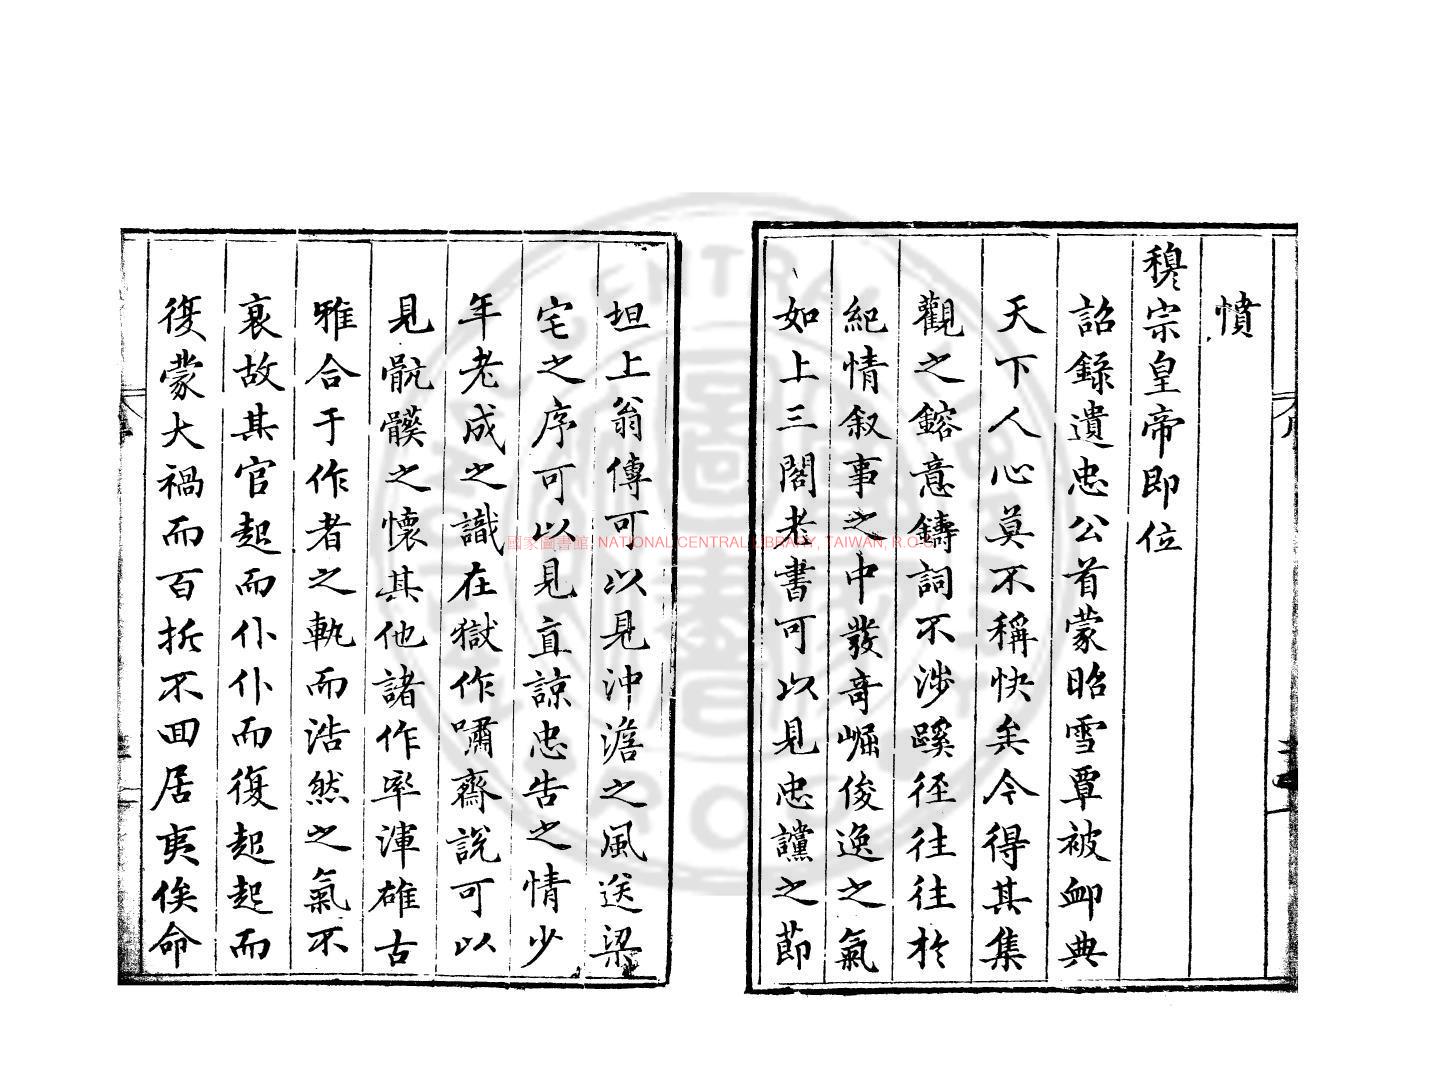 憤
穆宗皇帝即位
詔錄遺忠公首蒙昭雪覃被卹典
天下人心莫不稱快矣今得其集
觀之鎔意鑄詞不涉蹊徑往往於
紀情叙事之中發奇崛俊逸之氣
如上三閣老書可以見忠讜之節
坦上翁傳可以見沖澹之風送梁
宅之序可以見直諒忠告之情少
年老成之識在獄作嘯齋說可以
見骯髒之懷其他諸作率渾雄古
雅合于作者之軌而浩然之氣不
衰故其官起而仆仆而復起起而
復蒙大禍而百折不回居夷俟命
國家圖書館, NATIONAL CENTRAL LIBRARY, TAIWAN, R.O.C